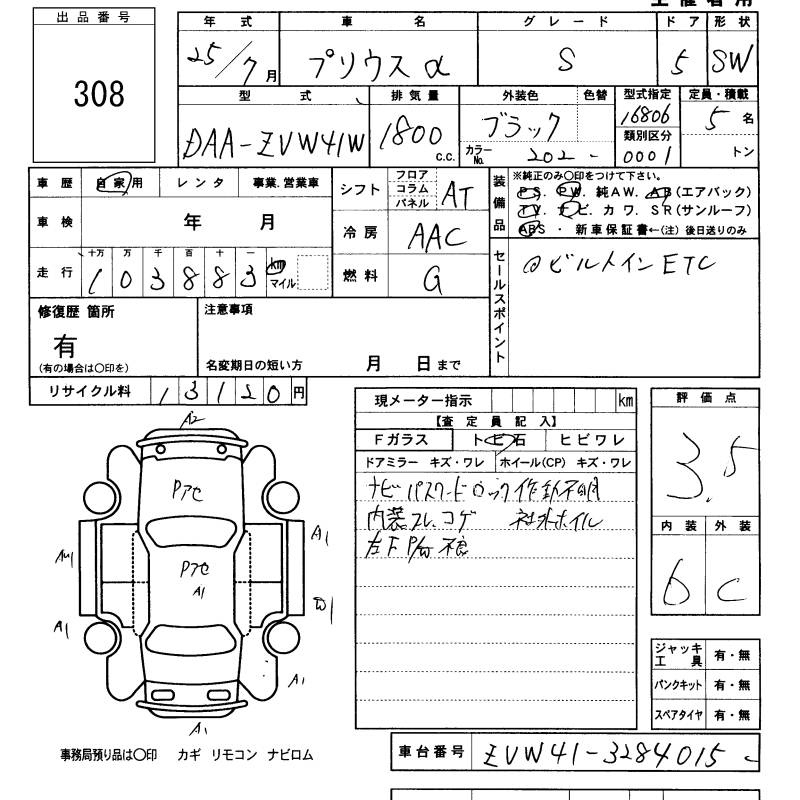 出品番号
308
年式 車名 グレード ドア 形状
25/7月 プリウスα S 5 SW
型式 排気量 外装色 色替 型式指定 定員・積載
DAA-ZVW41W 1800 C.C. ブラック 16806 5名
カラーNo. 202 類別区分 0001 トン
車歴 自家用 レンタ 事業.営業車
シフト フロア コラム パネル AT
装備品 ※純正のみ〇印をつけて下さい。
PS. PW. 純AW. AB(エアバック)
TV. ナビ. カワ. SR(サンルーフ)
ABS ・ 新車保証書←(注) 後日送りのみ
車検 年 月
冷房 AAC
走行 十万 万 千 百 十 一
103883 km マイル
燃料 G
セールスポイント
ビルトインETC
修復歴 箇所
有
(有の場合は〇印を)
注意事項
名変期日の短い方 月 日まで
リサイクル料 13120円
現メーター指示 km
【査定員記入】
Fガラス トビ石 ヒビワレ
ドアミラー キズ・ワレ ホイール(CP) キズ・ワレ
ナビパスワードロック作動不明
内装スレ.コゲ 社外ホイル
左F
評価点
3.5
内装 外装
C
A2
Pアセ
A1
Pアセ
A1
A1
A1
A1
ジャッキ工具 有・無
パンクキット 有・無
スペアタイヤ 有・無
事務局預り品は〇印 カギ リモコン ナビロム
車台番号 ZVW41-3284015